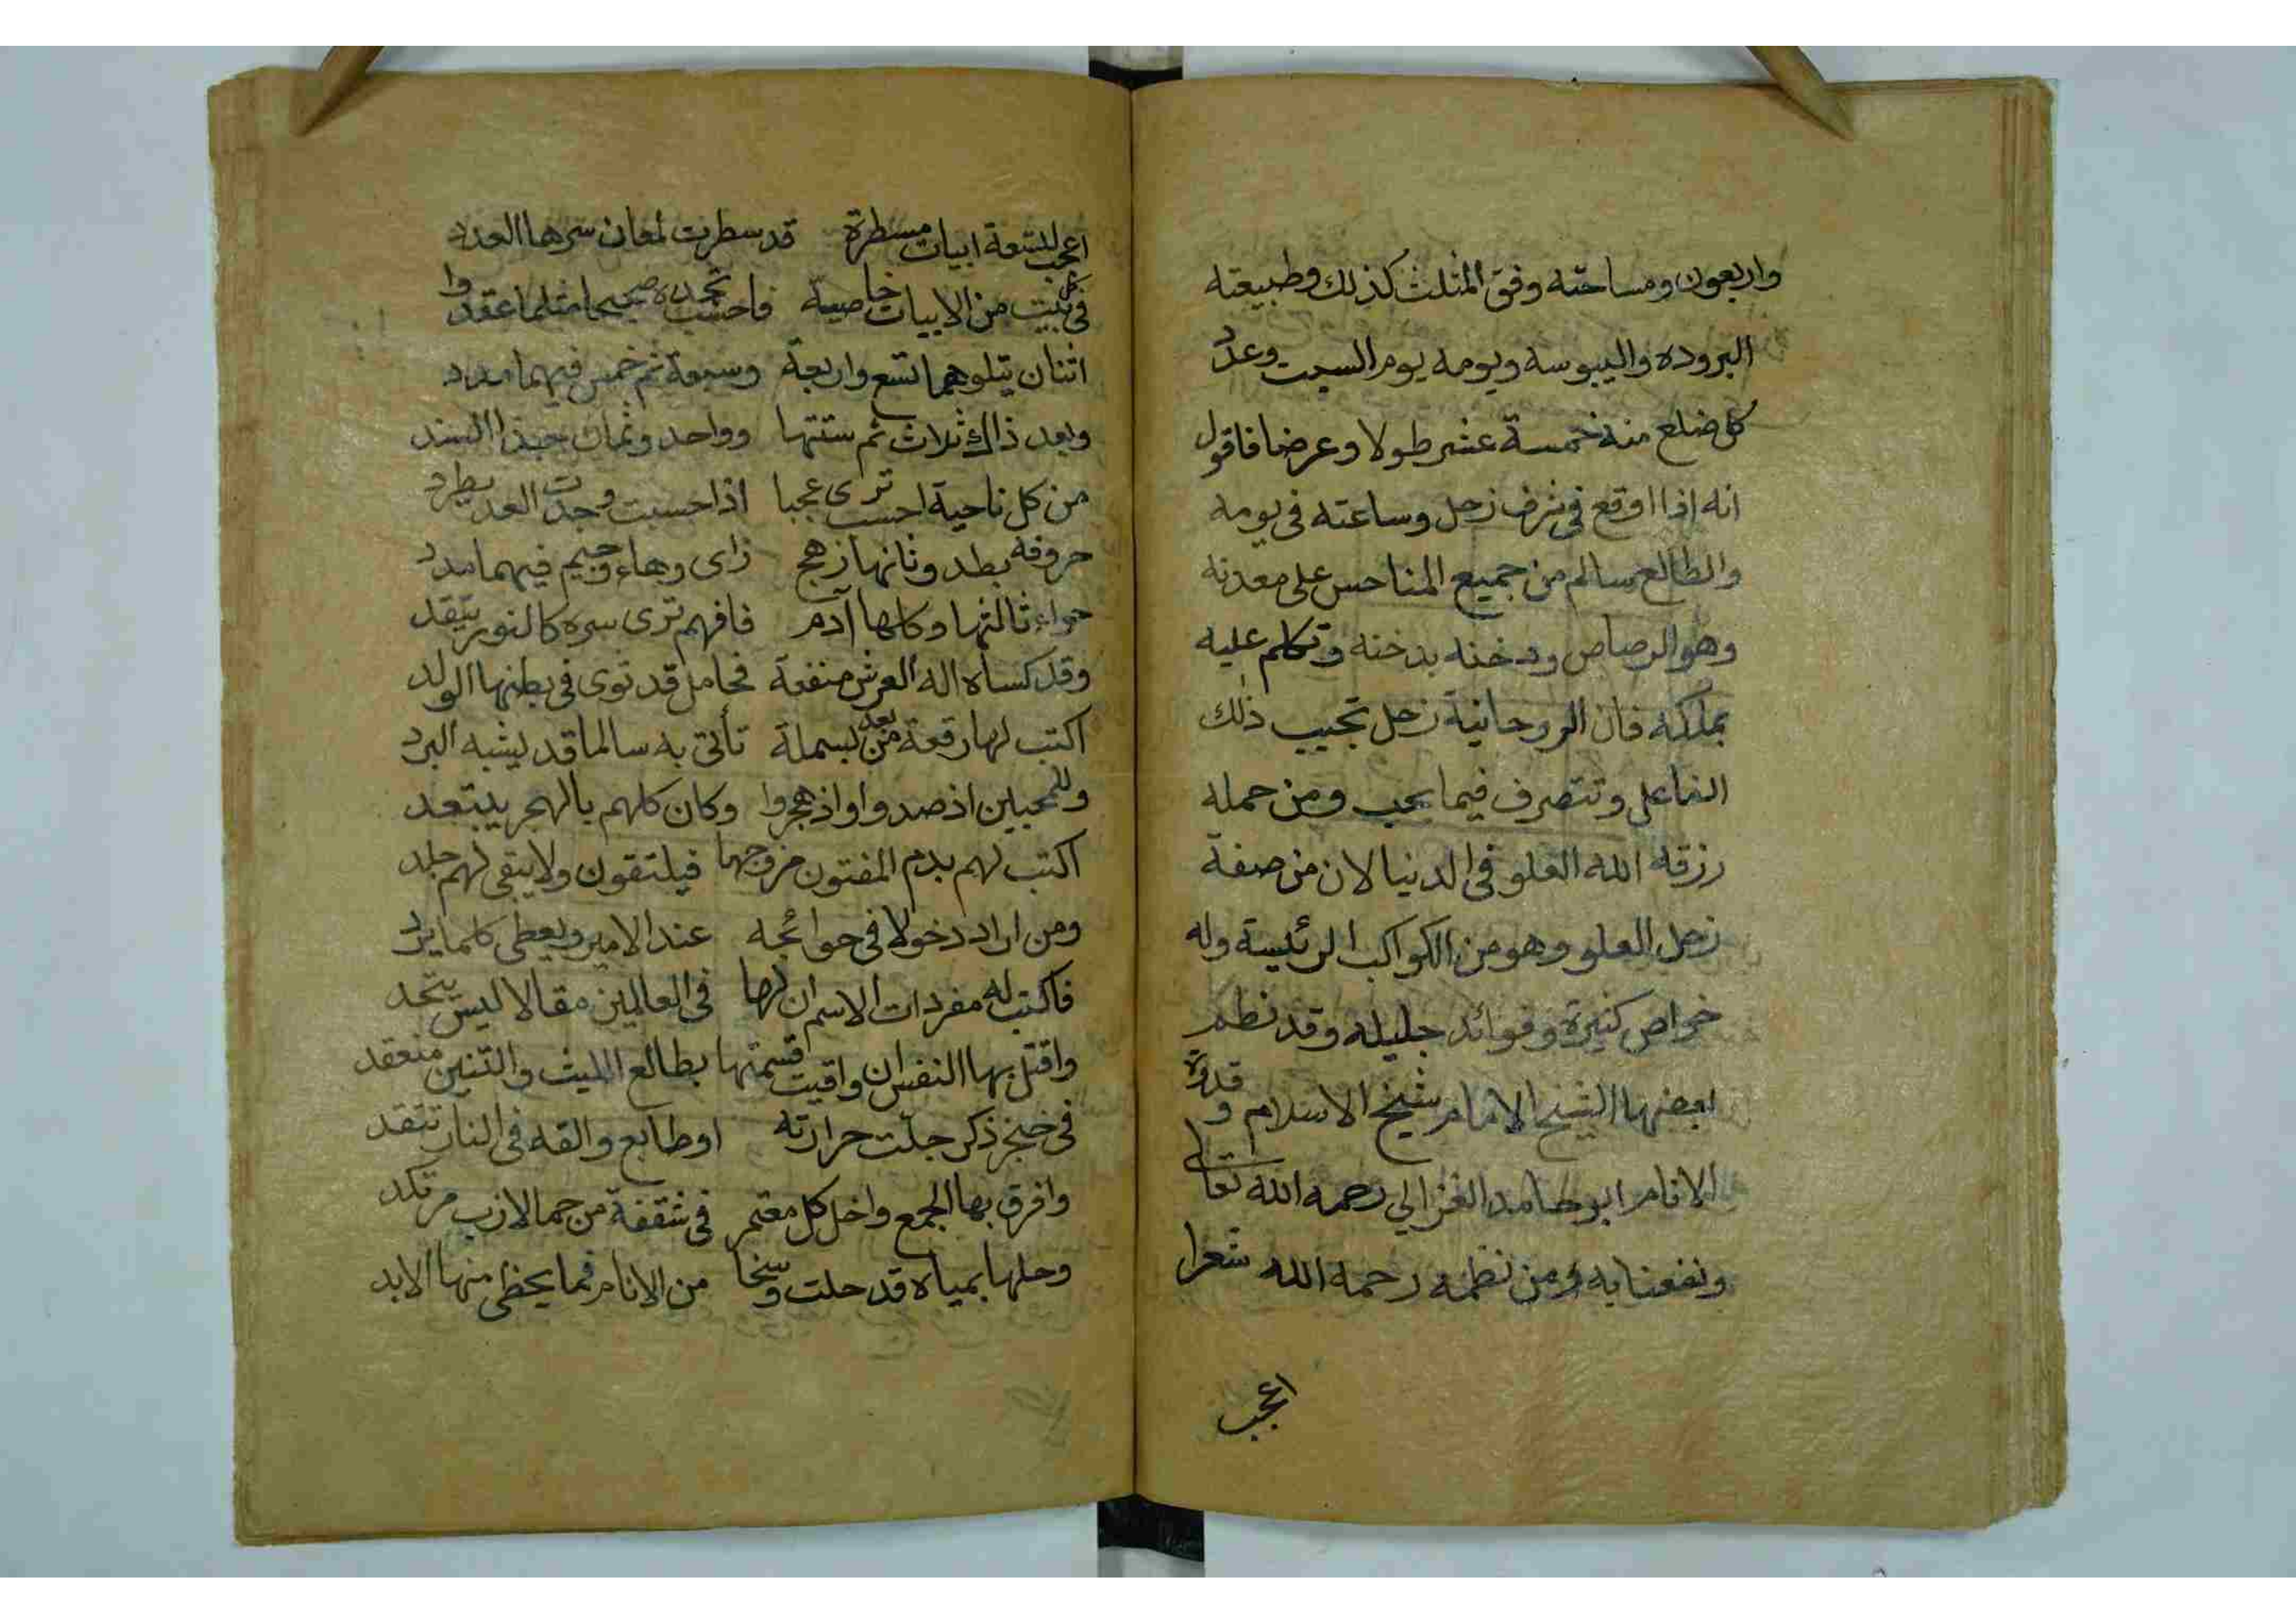 واربعون ومساحته وفق المثلث كذلك وطبيعته
البروده واليبوسه ويومه يوم السبت وعدد
كل ضلع منه خمسة عشر طولا وعرضا فاقول
انه اذا اوقع فى شرف زحل وساعته فى يومه
والطالع سالم من جميع المناحس على معدنه
وهو الرصاص ودخنه بدخنه وتكلم عليه
بملكه فان الروحانية زحل تجيب ذلك
الفاعل وتتصرف فيما يحب ومن حمله
رزقه الله العلو فى الدنيا لان من صفة
زحل العلو وهو من الكواكب الرئيسة وله
خواص كثيرة وفوائد جليله وقد نظم
بعضها الشيخ الامام شيخ الاسلام و قدوة
الانام ابو حامد الغزالي رحمه الله تعالى
ونفعنا به ومن نظمه رحمه الله شعرا
اعجب
اعجب لتسعة ابيات مسطرة قد سطرت لمعان سرها العدد
فى كل بيت من الابيات خاصية فاحسب تجده صحيحا مثلما عقدوا
اثنان يتلوهما تسع واربعة وسبعة ثم خمس فيهما مدد
وبعد ذاك ثلاث ثم ستتها وواحد وثمان حبذا السند
من كل ناحية احسب ترى عجبا اذا حسبت وجدت العد يطرد
حروفه بطد وثانها زهج زاى وهاء وجيم فيهما مدد
حواء ثالثها وكلها آدم فافهم ترى سره كالنور يتقد
وقد كساه اله العرش منفعة فحامل قد توى فى بطنها الولد
اكتب لها رقعة من بعد بسملة تأتى به سالما قد يشبه البرد
وللمحبين اذ صدوا واذ هجروا وكان كلهم بالهجر يبتعد
اكتب لهم بدم المفتون مزوجها فيلتقون ولا يبقى لهم جلد
ومن اراد دخولا فى حوائجه عند الامير ويعطى كلما يرد
فاكتب له مفردات الاسم ان لها فى العالمين مقالا ليس يتحد
واقتل بها النفس ان واقيت قسمتها بطالع الليث والتنين منعقد
فى خنجر ذكر جلت حرارته او طابع والقه فى النار تتقد
وافرق بها الجمع واخل كل معتمر فى شقفة من حما الازب مرتكد
وحلها بمياه قد حلت وسخا من الانام فما يحظى منها الابد